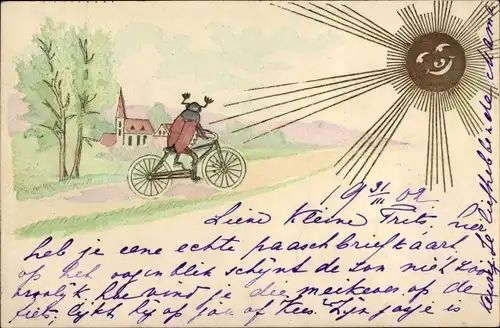 9 31/III 02
Lieve kleine Frits, hier
heb je eene echte paaschbriefkaart
op het oogenblik schijnt de zon niet zoo
vroolijk hoe vind je die meikever op de
fiets, lijkt hij op jou of Kees. Zijn jasje is